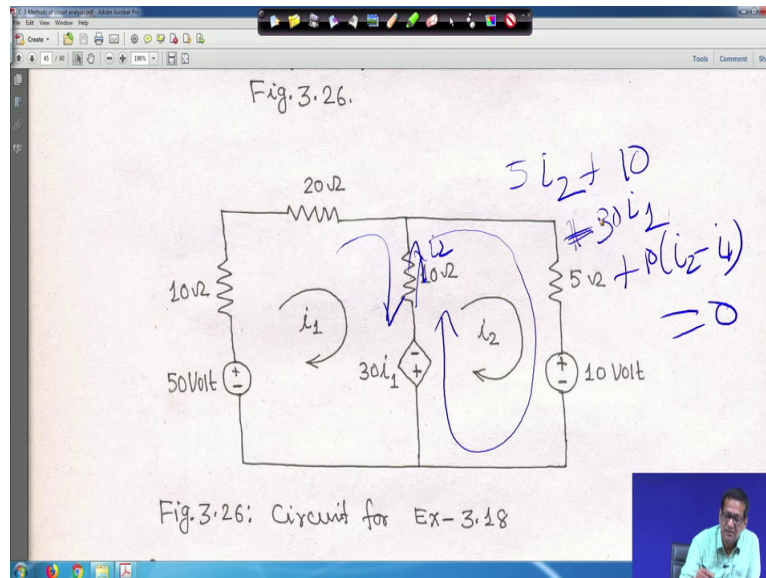 C-3-Methods of circuit analysis.pdf - Adobe Acrobat Pro
File Edit View Window Help
Create
45 / 80 198% Tools Comment Sh
Fig. 3.26.
5i₂ + 10
20Ω
30i₁
i₂
10Ω
5Ω
+ 10(i₂ - i₁)
10Ω
= 0
i₁
i₂
50Volt
30i₁
10 Volt
Fig. 3.26: Circuit for Ex-3.18